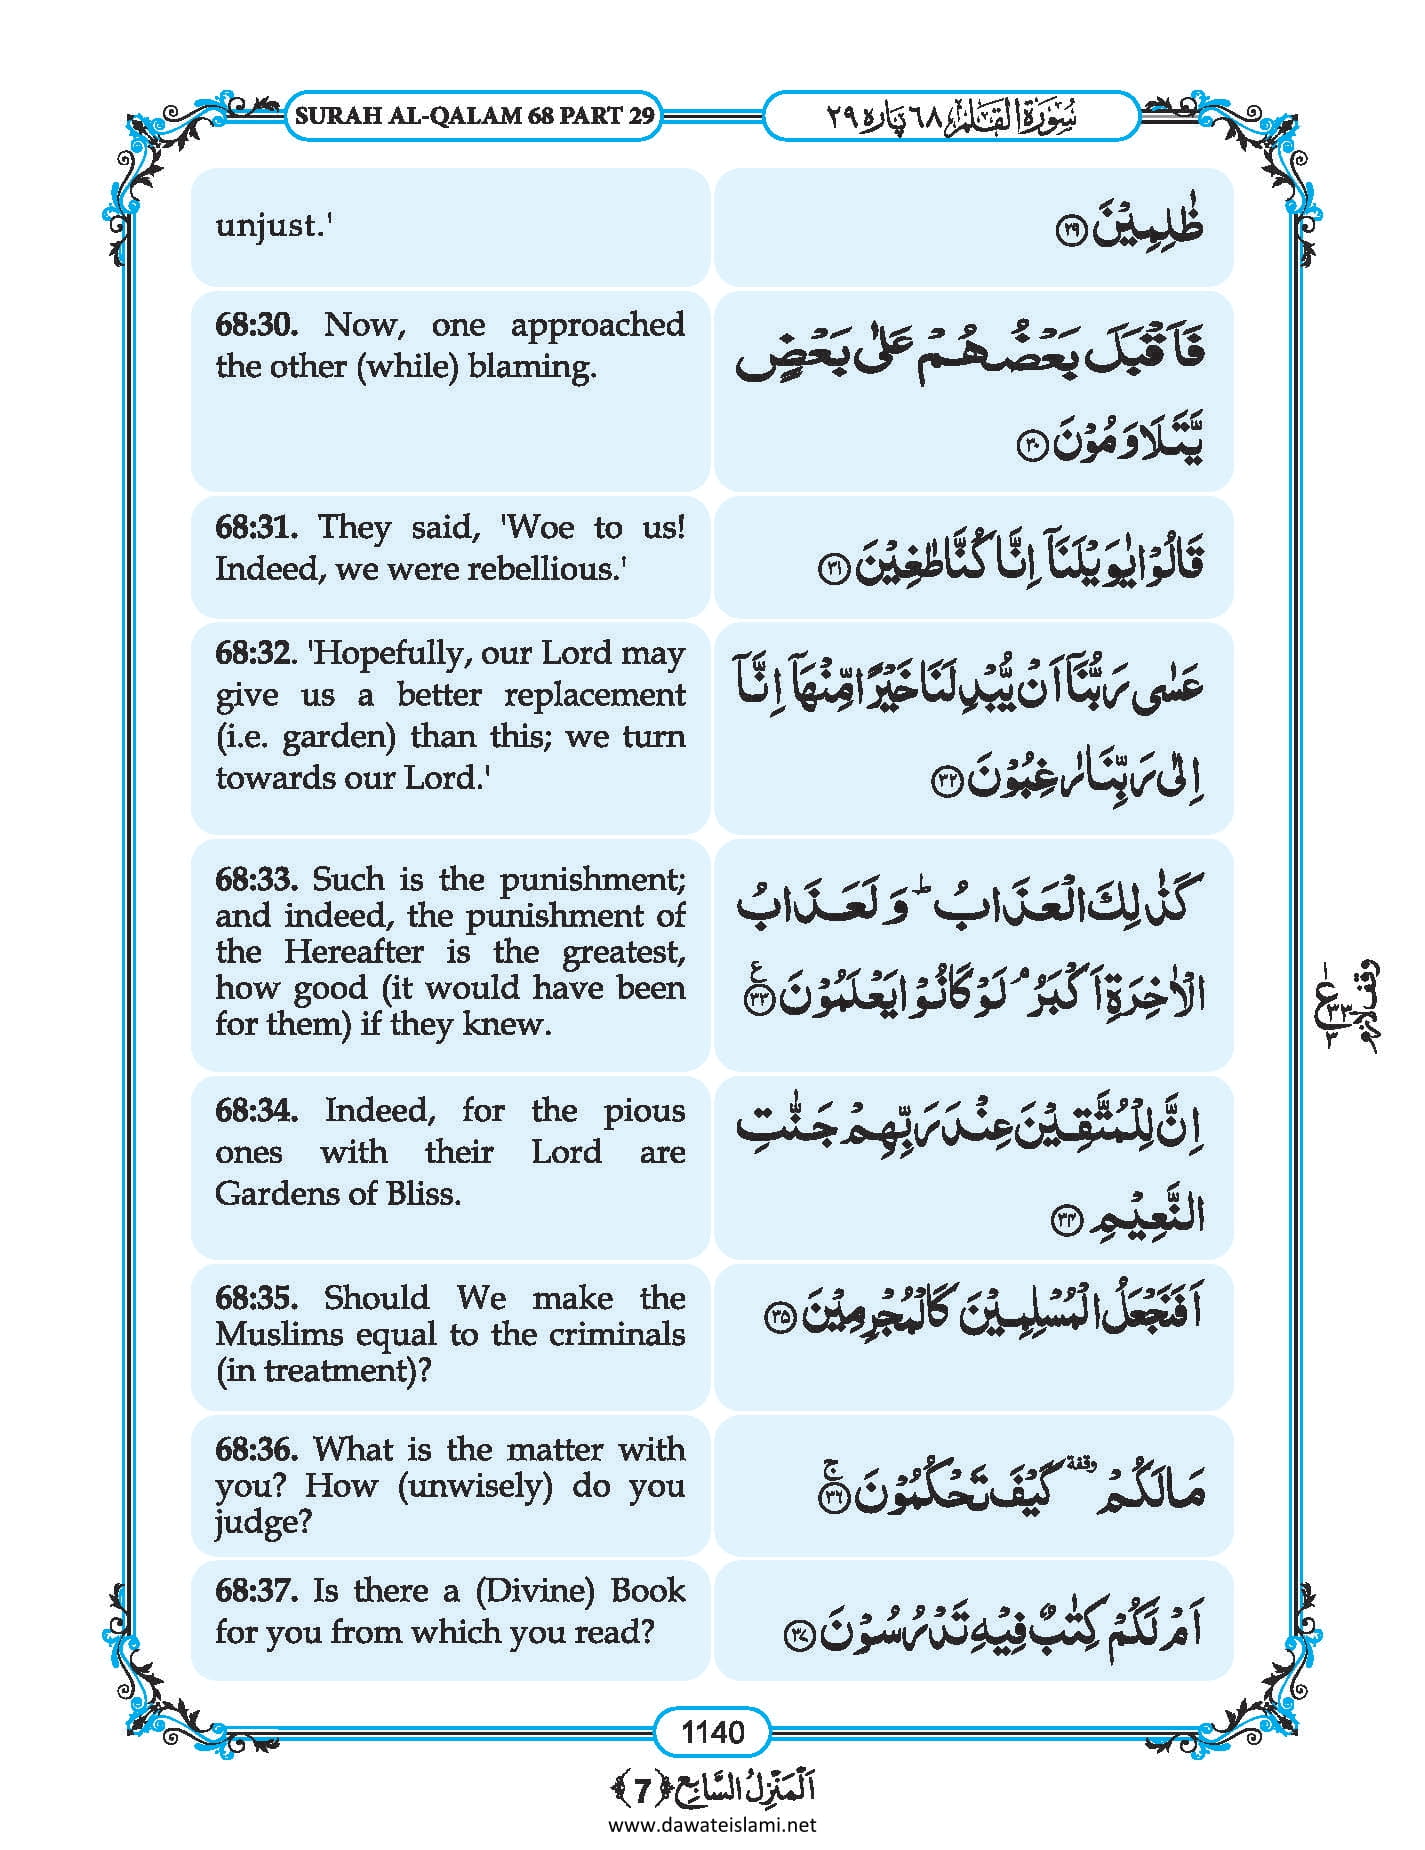 SURAH AL-QALAM 68 PART 29
سُوۡرَۃُ الۡقَلَمِ ٦٨ پَارہ ٢٩
unjust.'
ظٰلِمِیۡنَ ﴿۲۹﴾
68:30. Now, one approached
the other (while) blaming.
فَاَقۡبَلَ بَعۡضُہُمۡ عَلٰی بَعۡضٍ
یَّتَلَاوَمُوۡنَ ﴿۳۰﴾
68:31. They said, 'Woe to us!
Indeed, we were rebellious.'
قَالُوۡا یٰوَیۡلَنَاۤ اِنَّا کُنَّا طٰغِیۡنَ ﴿۳۱﴾
68:32. 'Hopefully, our Lord may
give us a better replacement
(i.e. garden) than this; we turn
towards our Lord.'
عَسٰی رَبُّنَاۤ اَنۡ یُّبۡدِلَنَا خَیۡرًا مِّنۡہَاۤ اِنَّاۤ
اِلٰی رَبِّنَا رٰغِبُوۡنَ ﴿۳۲﴾
68:33. Such is the punishment;
and indeed, the punishment of
the Hereafter is the greatest,
how good (it would have been
for them) if they knew.
کَذٰلِکَ الۡعَذَابُ ؕ وَ لَعَذَابُ
الۡاٰخِرَۃِ اَکۡبَرُ ۘ لَوۡ کَانُوۡا یَعۡلَمُوۡنَ ﴿۳۳﴾ ع
وقف لازم
١ ع ٣٣ ٣
68:34. Indeed, for the pious
ones with their Lord are
Gardens of Bliss.
اِنَّ لِلۡمُتَّقِیۡنَ عِنۡدَ رَبِّہِمۡ جَنّٰتِ
النَّعِیۡمِ ﴿۳۴﴾
68:35. Should We make the
Muslims equal to the criminals
(in treatment)?
اَفَنَجۡعَلُ الۡمُسۡلِمِیۡنَ کَالۡمُجۡرِمِیۡنَ ﴿۳۵﴾
68:36. What is the matter with
you? How (unwisely) do you
judge?
مَا لَکُمۡ وقفۃ کَیۡفَ تَحۡکُمُوۡنَ ﴿۳۶﴾ۚ
68:37. Is there a (Divine) Book
for you from which you read?
اَمۡ لَکُمۡ کِتٰبٌ فِیۡہِ تَدۡرُسُوۡنَ ﴿۳۷﴾
1140
اَلۡمَنۡزِلُ السَّابِع ﴿7﴾
www.dawateislami.net